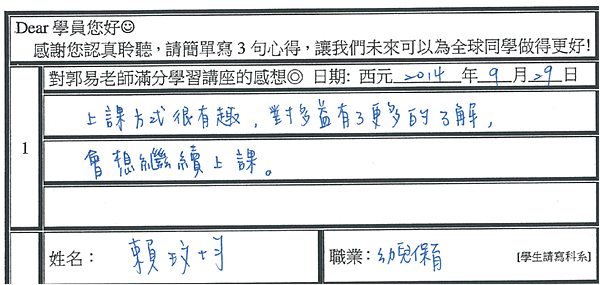 Dear 學員您好☺
感謝您認真聆聽，請簡單寫 3 句心得，讓我們未來可以為全球同學做得更好!
1
對郭易老師滿分學習講座的感想◎ 日期: 西元 2014 年 9 月 29 日
上課方式很有趣，對多益有了更多的了解，
會想繼續上課。
姓名： 賴玟 職業： 幼兒保育 [學生請寫科系]